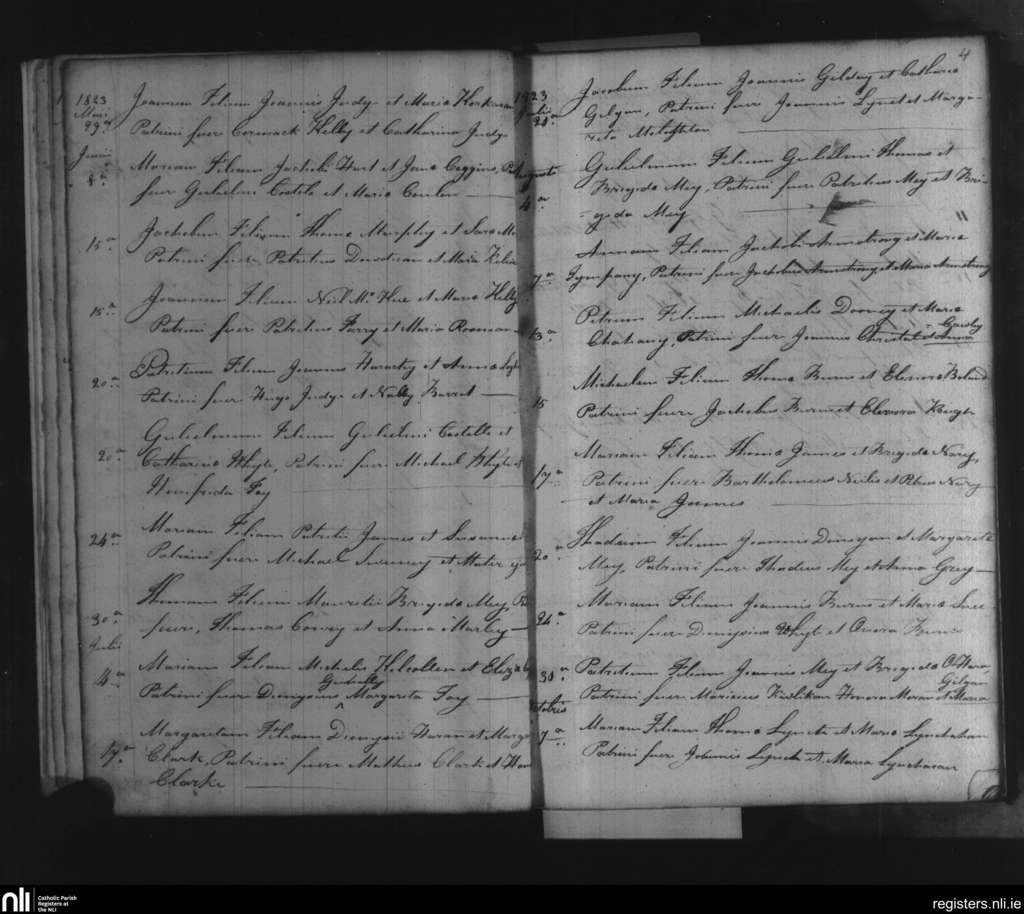 1823
Maii
29ª
Joannem Filium Joannis Judge et Maria
Patrini fuer Cormack Kelly et Catharina Judge
Junii
8ª
Mariam Filiam Jachobi Hart et Jane Coggins,
fuer Gulielm Costelo et Maria Conlon
15ª
Jachobum Filium Thoma Murphy et Sara
Patrini fuer Patritius et Maria
15ª
Joannem Filium Neil McHue et Maria Kelly
Patrini fuer Patritius Farry et Maria Roonan
20ª
Patritium Filium Joannis Haraty et Anna
Patrini fuer Hugo Judge et Nally Barret
20ª
Gulielmum Filium Gulielmi Costello et
Catharina Whyte, Patrini fuer Michael Whyte et
Winifrida Foy
24ª
Mariam Filiam Patritii James et Susanna
Patrini fuere Michael Sweeney et Mater
30ª
Thomam Filium Mauritii Brigida Mey,
fuere, Thomas Convey et Anna Marley
Julii
4ª
Mariam Filiam Michelis et
Patrini fuere Dionysius Margarita Foy
17ª
Margaretam Filiam Dionysii Haran et
Clark, Patrini fuere Matheus Clark et
Clarke
4
1923
Julii
21ª
Jacobum Filium Joannis Gilday et Catharia
Gilgan, Patrini fuer Joannis Lynct et Marga-
rita
Augusti
4ª
Gulielmum Filium Gulielmi Thomas et
Brigida Mey, Patrini fuer Patritius Mey et Bri-
-gida Mey
7ª
Annam Filiam Jachobi Armstrong et Maria
Tympany, Patrini fuer Jachobus Armstrong et Maria Armstrong
13ª
Petrum Filium Michaelis Dooney et Maria
Chahany, Patrini fuer Joannis Christal et Anna
15
Michaelem Filium Thoma Burns et Elenora
Patrini fuere Jachobus Burns et Elenora
17ª
Mariam Filiam Thoma James et Brigida Nary,
Patrini fuere Bartholomeus et Nary
et Maria James
20ª
Thadeum Filium Joannis et Margarita
Mey, Patrini fuere Thadeus Mey et Anna Grey
24ª
Mariam Filiam Joannis Burns et Maria
Patrini fuere Dionysius Whyte et Onora Burns
30ª
Patritium Filium Joannis Mey et Brigida O'Hara
Gilgan
Patrini fuere Honora Moran et Maria
Octobris
7ª
Mariam Filiam Thoma Lynch et Maria Lynchahan
Patrini fuer Joannis Lynch et Maria Lynchahan
nli
Catholic Parish
Registers at
the NLI
registers.nli.ie